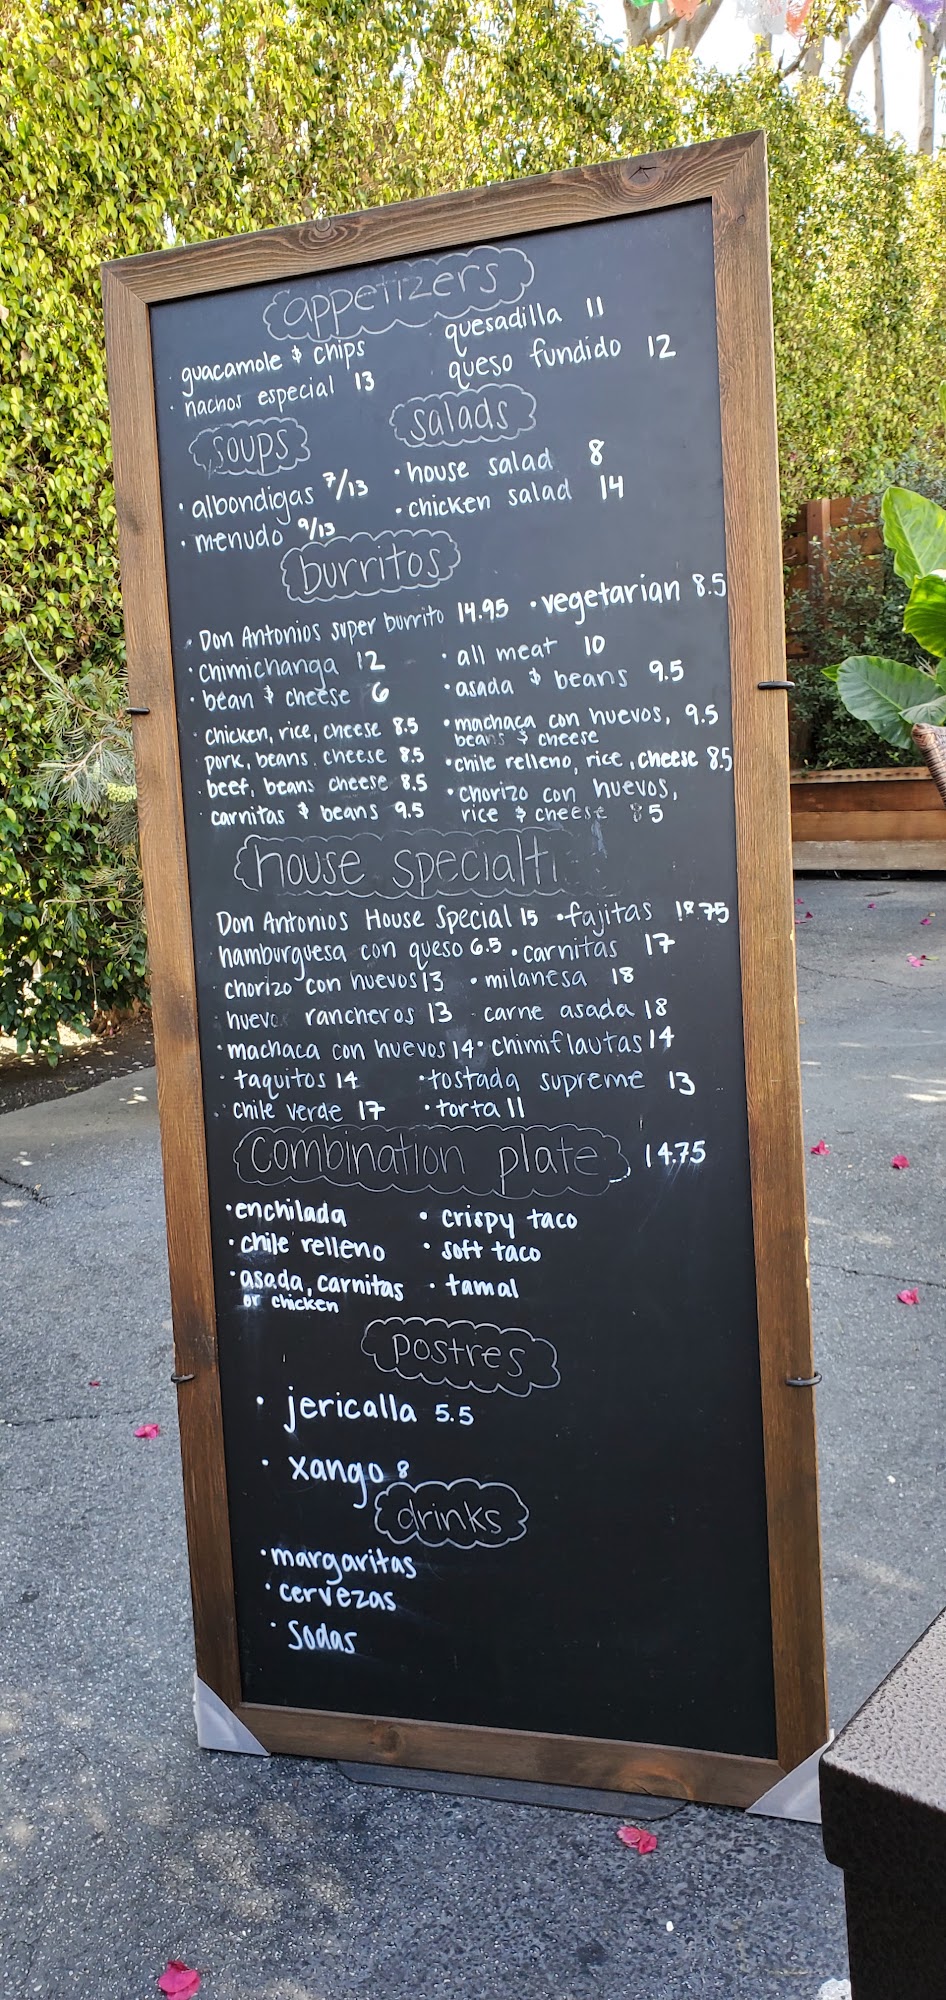 appetizers
guacamole & chips
nachos especial 13
quesadilla 11
queso fundido 12
soups
• albondigas 7/13
• menudo 9/13
salads
• house salad 8
• chicken salad 14
burritos
• Don Antonios super burrito 14.95
• chimichanga 12
• bean & cheese 6
chicken, rice, cheese 8.5
pork, beans, cheese 8.5
beef, beans cheese 8.5
carnitas & beans 9.5
• vegetarian 8.5
• all meat 10
• asada & beans 9.5
• machaca con huevos, 9.5
beans & cheese
• chile relleno, rice, cheese 8.5
• chorizo con huevos,
rice & cheese 8 5
house specialti
Don Antonios House Special 15 • fajitas 18.75
hamburguesa con queso 6.5 • carnitas 17
chorizo con huevos 13 • milanesa 18
huevo rancheros 13 carne asada 18
• machaca con huevos 14 • chimiflautas 14
• taquitos 14 • tostada supreme 13
• chile verde 17 • torta 11
combination plate 14.75
• enchilada • crispy taco
• chile relleno • soft taco
• asada, carnitas • tamal
or chicken
postres
• jericalla 5.5
• xango 8
drinks
• margaritas
• cervezas
• Sodas